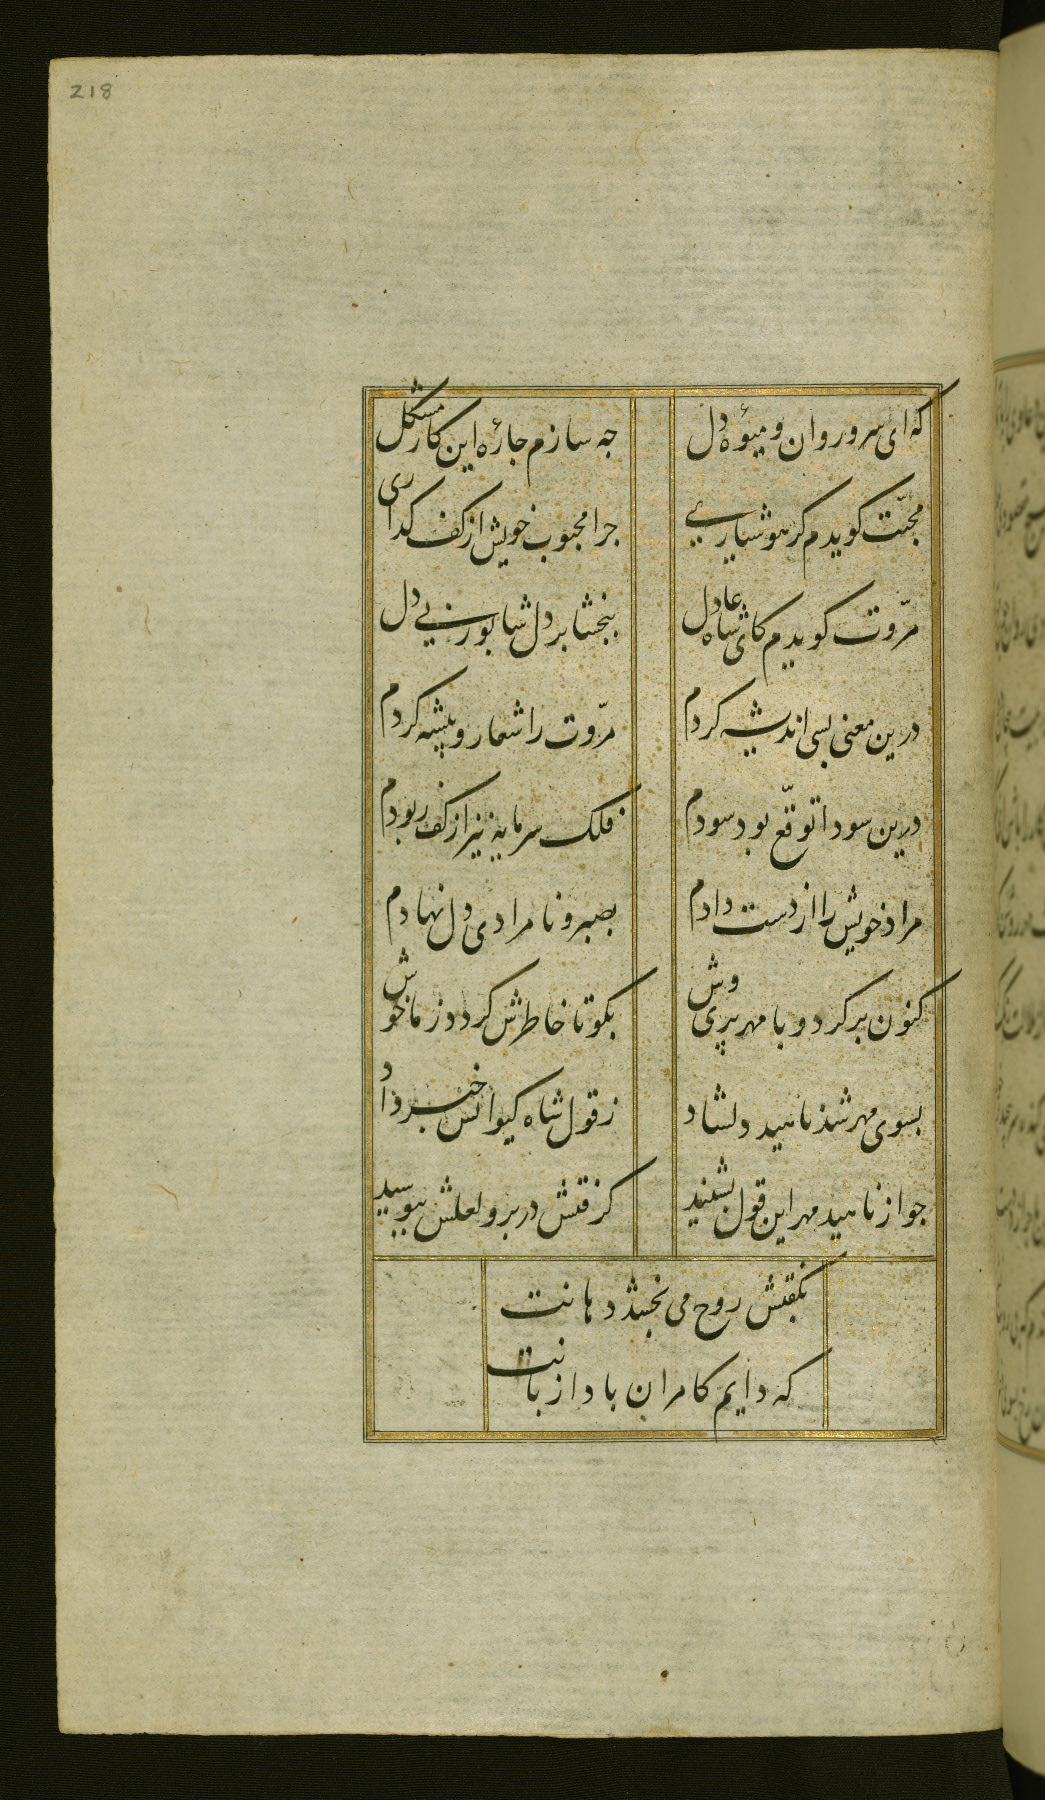 218
که ای سرو روان و میوۀ دل
جه سازم جارۀ این کار مشکل
محبّت کویدم کر هوشیاریی
جرا محبوب خویش از کف کداری
مرّوت کویدم کای شاه عادل
ببخشا بر دل شابور بی دل
درین معنی بسی اندیشه کردم
مرّوت را شعار و پیشه کردم
درین سودا توقّع بود سودم
فلک سرمایه نیز از کف ربودم
مراد خویش را از دست دادم
بصبر و نامرادی دل نهادم
کنون برکرد و با مهر پری وش
بکو تا خاطرش کردد ز ما خوش
بسوی مهر شد ناهید دلشاد
ز قول شاه کیوانش خبر داد
جو از ناهید مهر این قول بشنید
کرفتش در بر و لعلش ببوسید
بکفتش روح می بخشد دهانت
که دایم کامران بادا زبانت